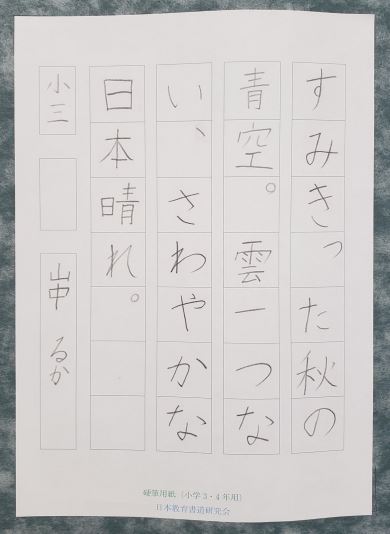 すみきった秋の
青空。雲一つな
い、さわやかな
日本晴れ。
小三
山中 るか
硬筆用紙〔小学3・4年用〕
日本教育書道研究会